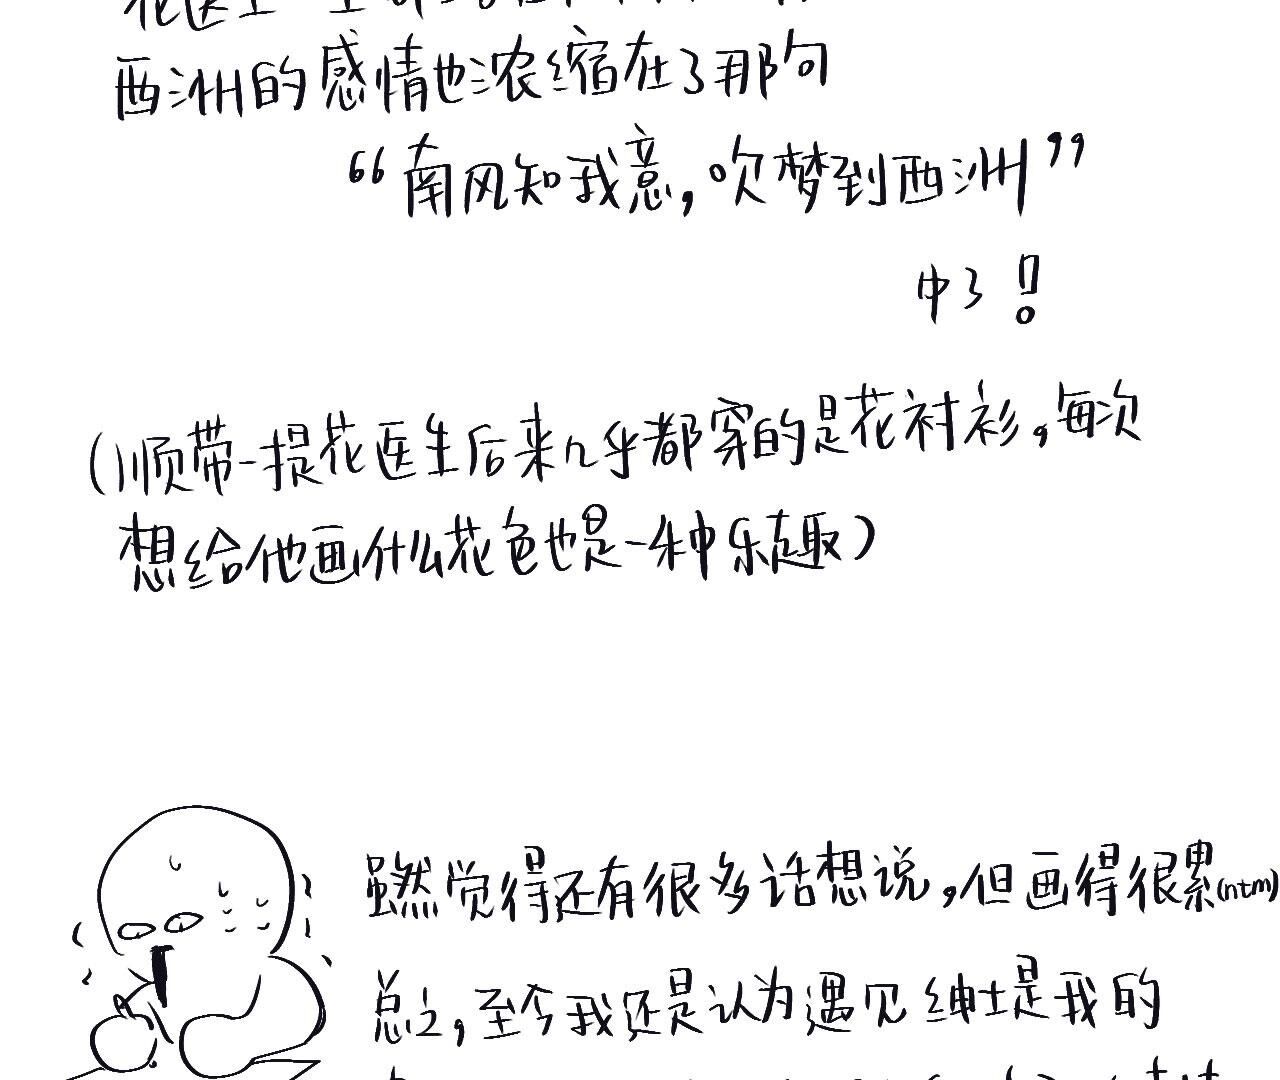 西洲的感情也浓缩在了那句
“南风知我意，吹梦到西洲”
中了！
（顺带一提花医生后来几乎都穿的是花衬衫，每次
想给他画什么花色也是一种乐趣）
虽然觉得还有很多话想说，但画得很累(ntm)
总之，至今我还是认为遇见绅士是我的